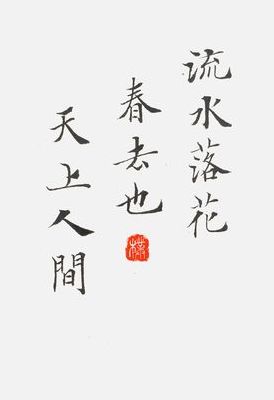 流水落花
春去也
天上人間